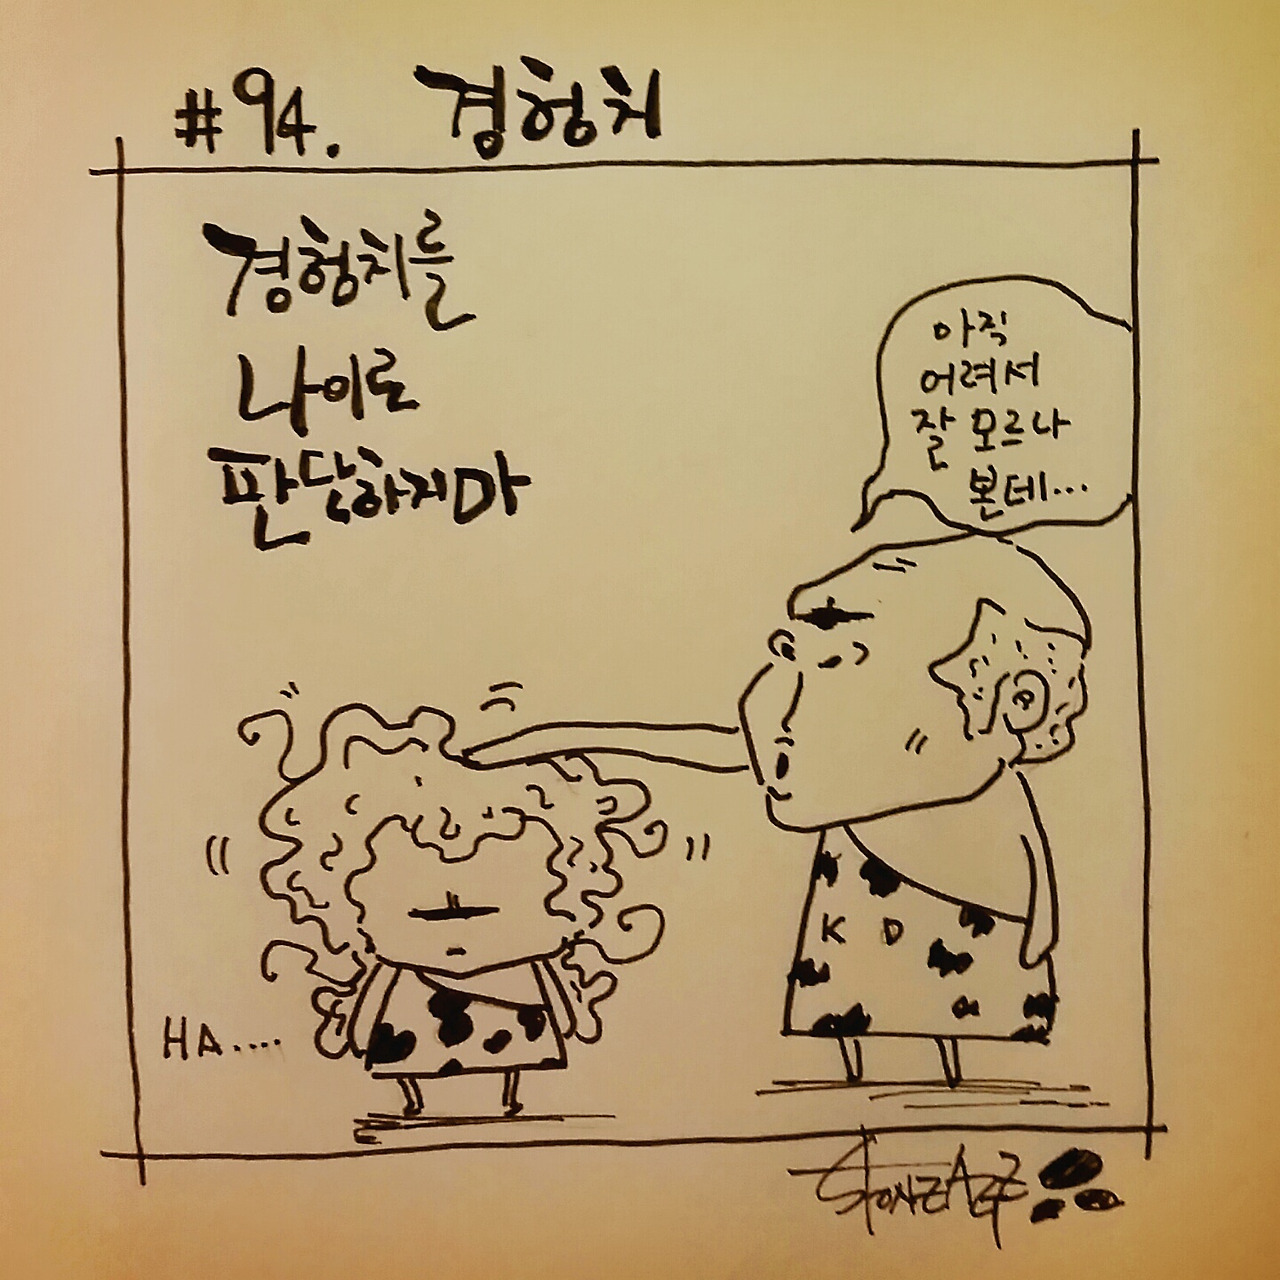 #94. 경험치
경험치를
나이로
판단하지마
아직
어려서
잘 모르나
본데...
K D
HA....
STONZAZZ